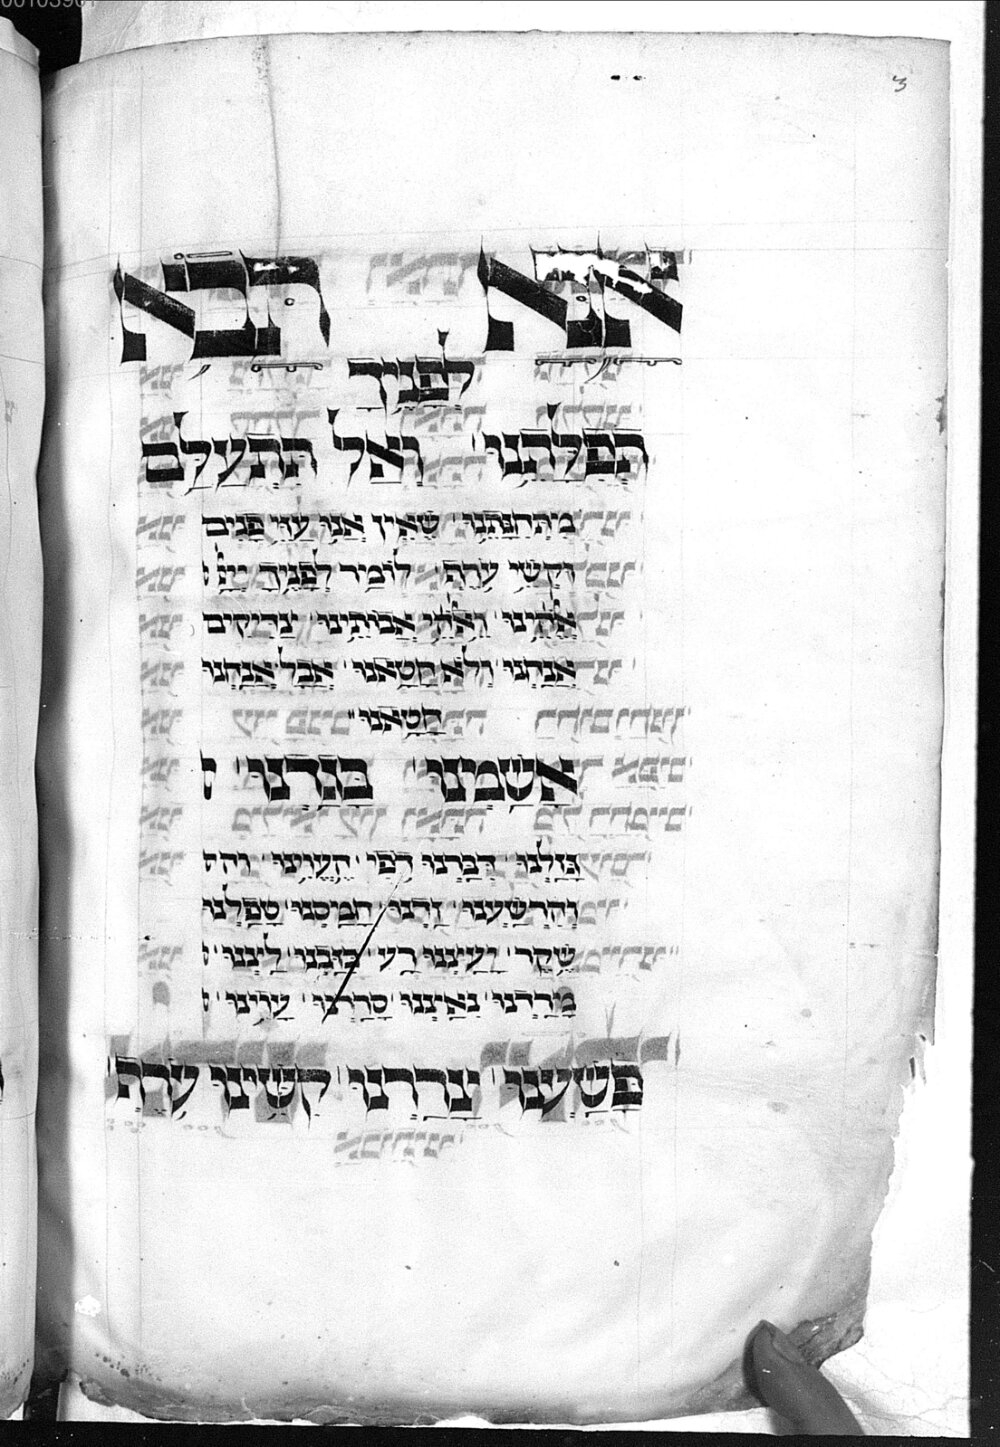 3
אנא תבא
לְפָנֶיךָ
תְּפִלָּתֵנוּ וְאַל תִּתְעַלֵּם
מִתְּחִנָּתֵנוּ שֶׁאֵין אָנוּ עַזֵּי פָנִים
וּקְשֵׁי עֹרֶף לוֹמַר לְפָנֶיךָ יְיָ
אֱלֹהֵינוּ וֵאלֹהֵי אֲבוֹתֵינוּ צַדִּיקִים
אֲנַחְנוּ וְלֹא חָטָאנוּ אֲבָל אֲנַחְנוּ
חָטָאנוּ
אָשַׁמְנוּ בָּגַדְנוּ
גָּזַלְנוּ דִּבַּרְנוּ דֹפִי הֶעֱוִינוּ והר
וְהִרְשַׁעְנוּ זַדְנוּ חָמַסְנוּ טָפַלְנוּ
שֶׁקֶר יָעַצְנוּ רָע כִּזַּבְנוּ לַצְנוּ
מָרַדְנוּ נִאַצְנוּ סָרַרְנוּ עָוִינוּ
פָּשַׁעְנוּ צָרַרְנוּ קִשִּׁינוּ עֹרֶף